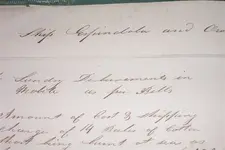 Ship Espindola and O
Sundry Disbursements in
Mobile as per Bills
Amount of Cost & Shipping
Charge of 19 Bales of Cotton
that being short at sea as